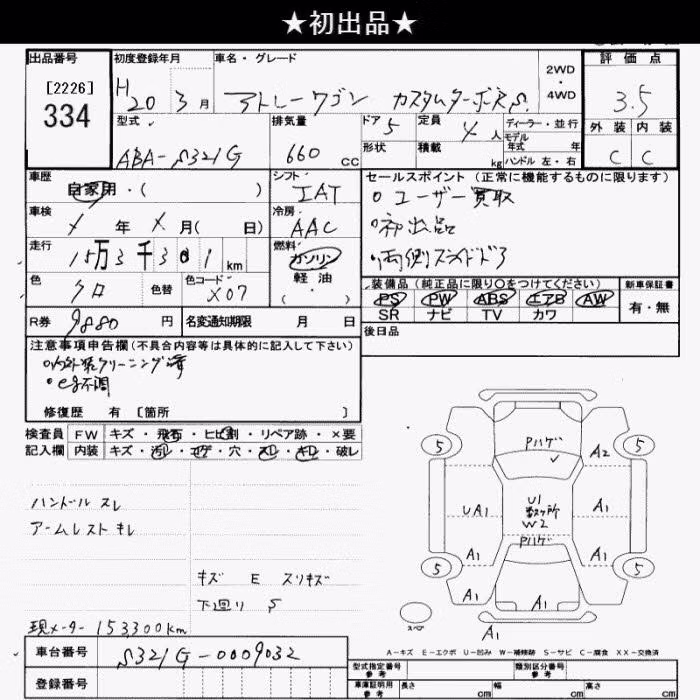 ★初出品★
出品番号
[2226]
334
初度登録年月
H20 3月
車名・グレード
アトレーワゴン カスタムターボR.S.
2WD
・
4WD
評価点
3.5
外装 内装
C C
型式
ABA-S321G
排気量
660 cc
ドア
5
形状
定員
4人
積載
kg
ディーラー・並行
モデル
年式 年
ハンドル 左・右
車歴
自家用・( )
シフト
IAT
冷房
AAC
車検
X年X月( 日)
走行
15万3千301km
燃料
ガソリン
軽油
・
( )
色
クロ
色替
色コード
X07
R券
9880円
名変通知期限 月 日
セールスポイント(正常に機能するものに限ります)
○ユーザー買取
○初出品
○両側スライドドア
装備品(純正品に限り○をつけてください)
PS PW ABS エアB AW
SR ナビ TV カワ
新車保証書
有・無
後日品
注意事項申告欄(不具合内容等は具体的に記入して下さい)
○内外装クリーニング済
修復歴 有 [箇所 ]
検査員
記入欄
FW キズ・飛石・ヒビ割・リペア跡・×要
内装 キズ・汚レ・コゲ・穴・スレ・キレ・破レ
ハンドル スレ
アームレスト キレ
キズ E スリキズ
下廻り S
現メーター 153,300km
車台番号
S321G-0009032
登録番号
Pハゲ
5
5
A2
UA1
U1
数ヶ所
W2
A1
Pハゲ
A1
A1
5
5
A1
A1
A1
A1
スペア
A-キズ E-エクボ U-凹み W-補修跡 S-サビ C-腐食 XX-交換済
型式指定番号
参考
類別区分番号
参考
車庫証明用
参考
長さ cm
幅 cm
高さ cm